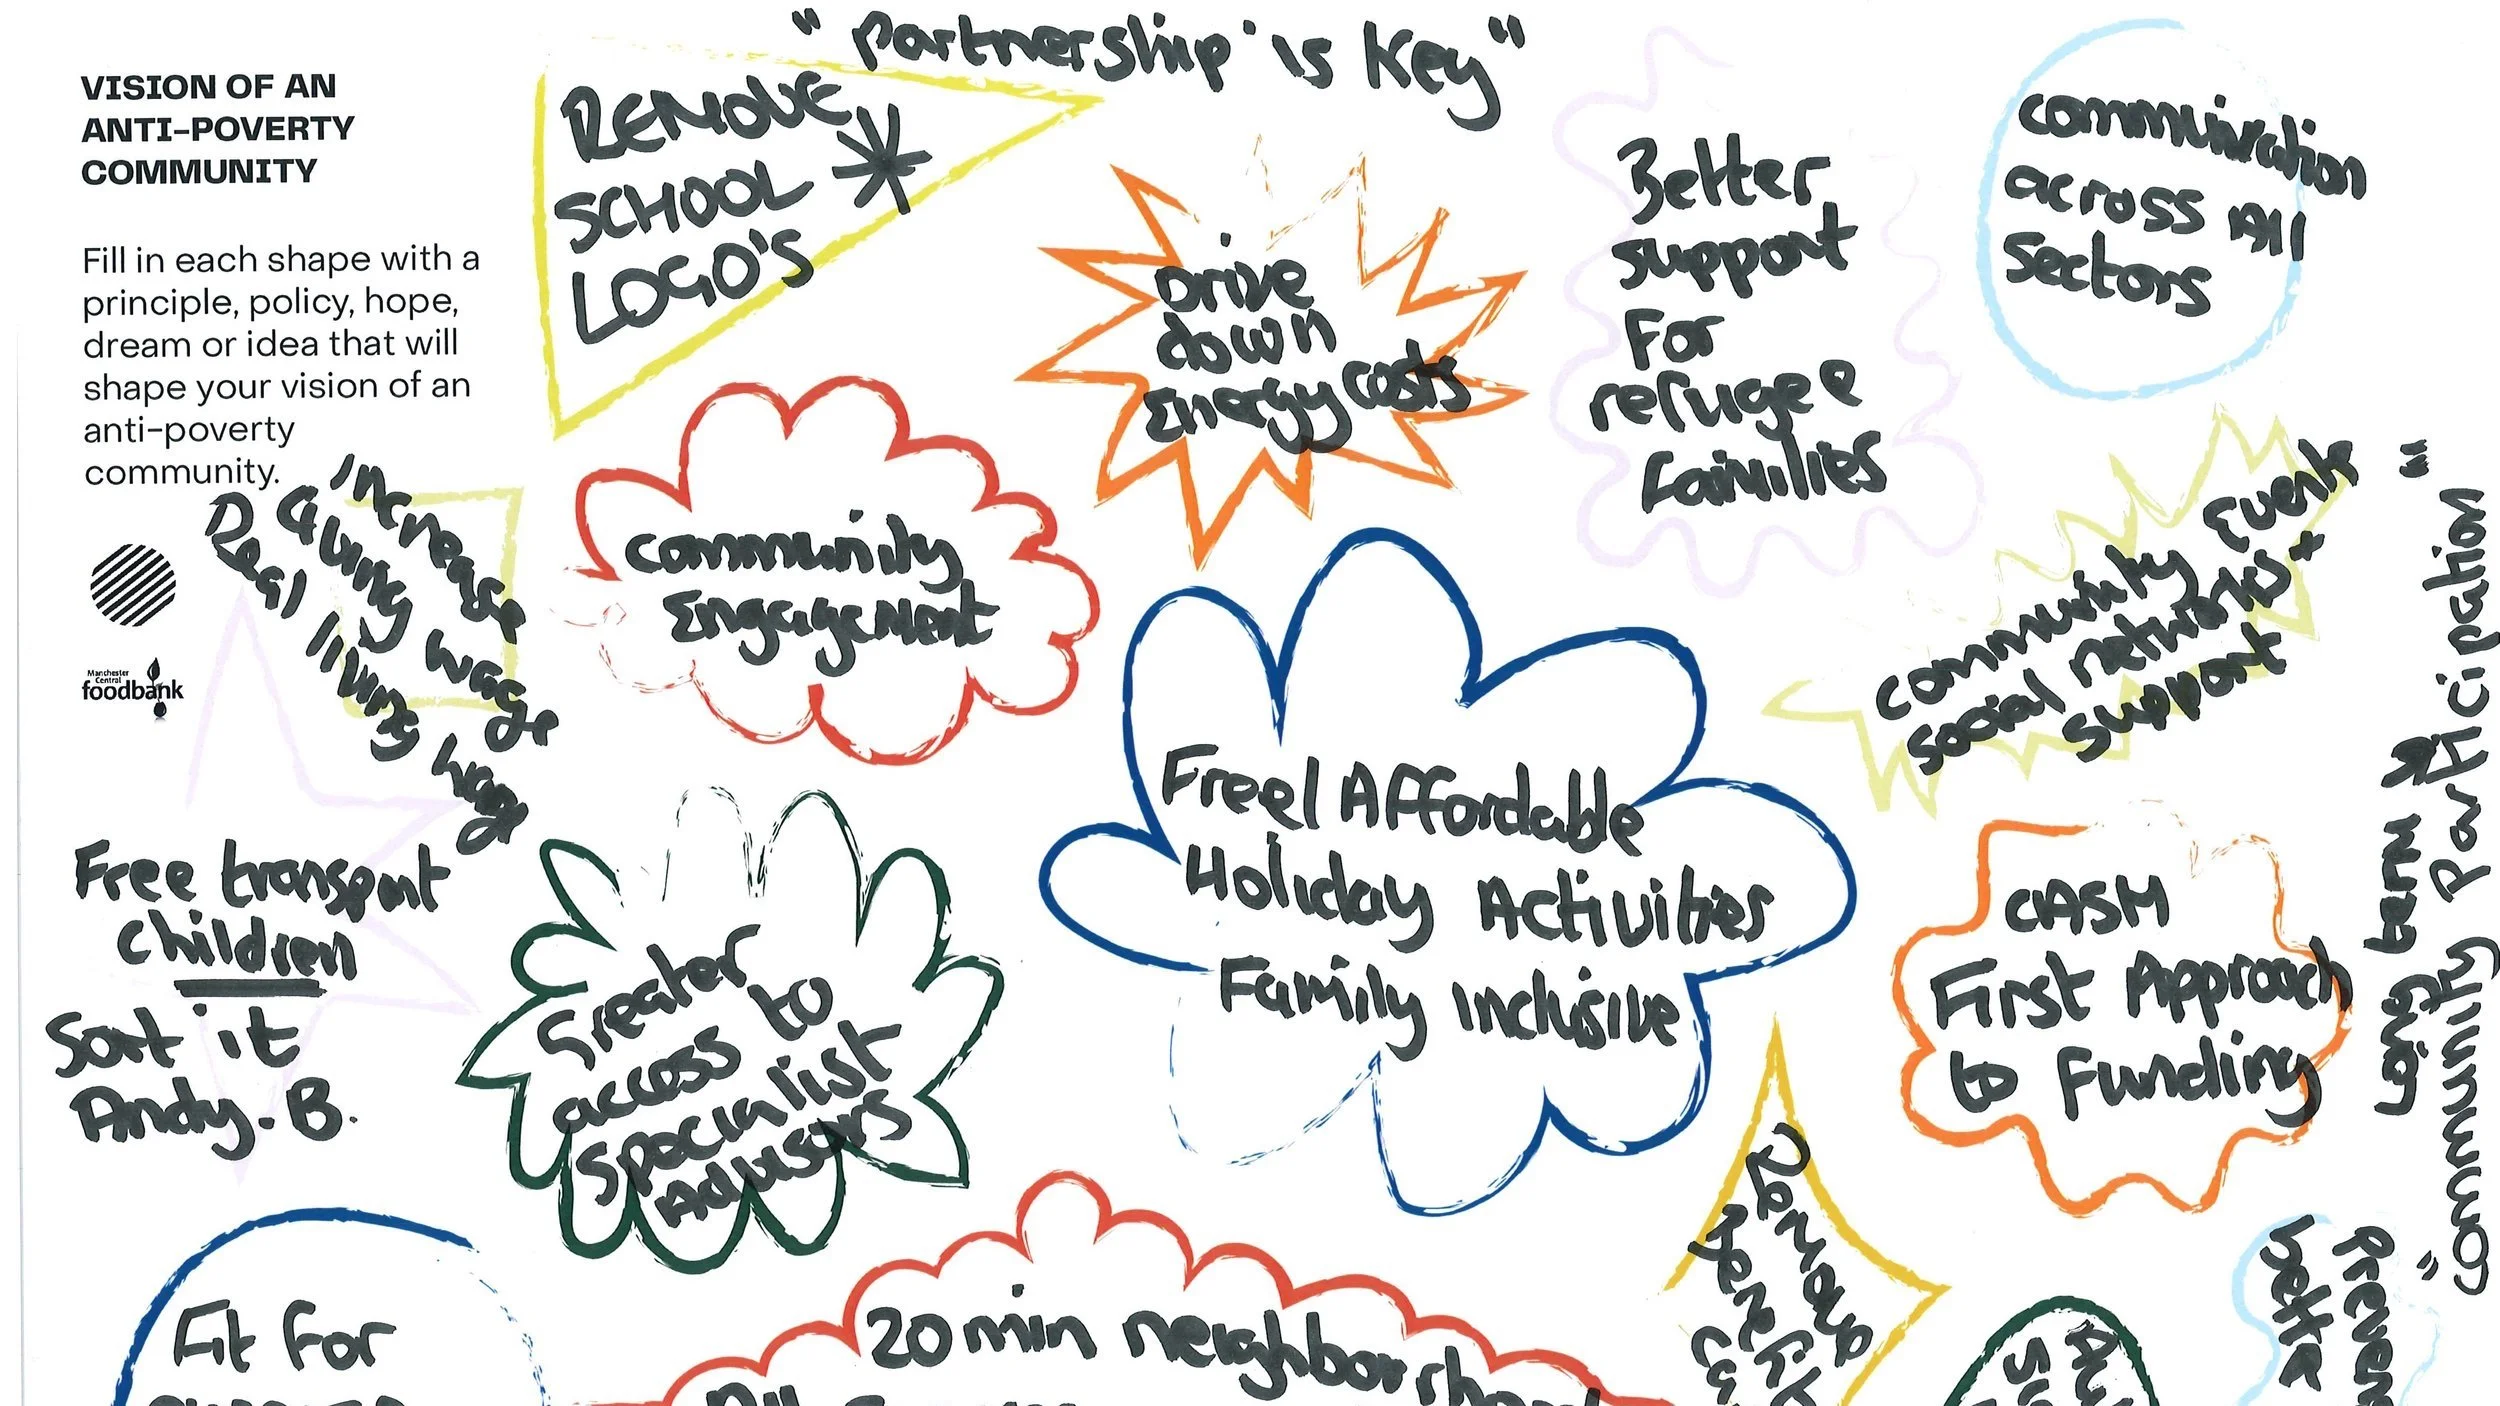 VISION OF AN
ANTI-POVERTY
COMMUNITY
Fill in each shape with a
principle, policy, hope,
dream or idea that will
shape your vision of an
anti-poverty
community.
Manchester
Central
foodbank
"Partnership is Key"
REMOVE *
SCHOOL
LOGO'S
Drive
down
Energy costs
Better
support
For
refugee
families
communication
across All
Sectors
Increase
Living wage
Real living wage
Community
Engagement
Community Event
Social networks +
Support
Free transport
Children
Sort it
Andy. B.
Greater
access to
Specialist
Advisors
Free/Affordable
Holiday Activities
Family Inclusive
CASH
First Approach
to Funding
Long term &
"Community Participation"
Fit for
20 min neighborhood
All
Remove
Benefit
Better